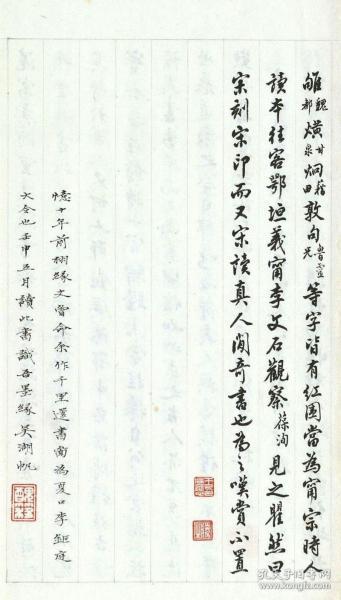 魏都爌甘泉炯藉田敦句魯靈光等字皆有红圈當為甯宗時人
讀本往客鄂垣義甯李文石觀察葆洵見之瞿然曰
宋刻宋印而又宋讀真人間奇書也為之嘆賞不置
憶十年前栩緣丈曾命余作千里還書圖為夏口李鉅庭
大令也壬申五月讀此書識吾墨緣吳湖帆